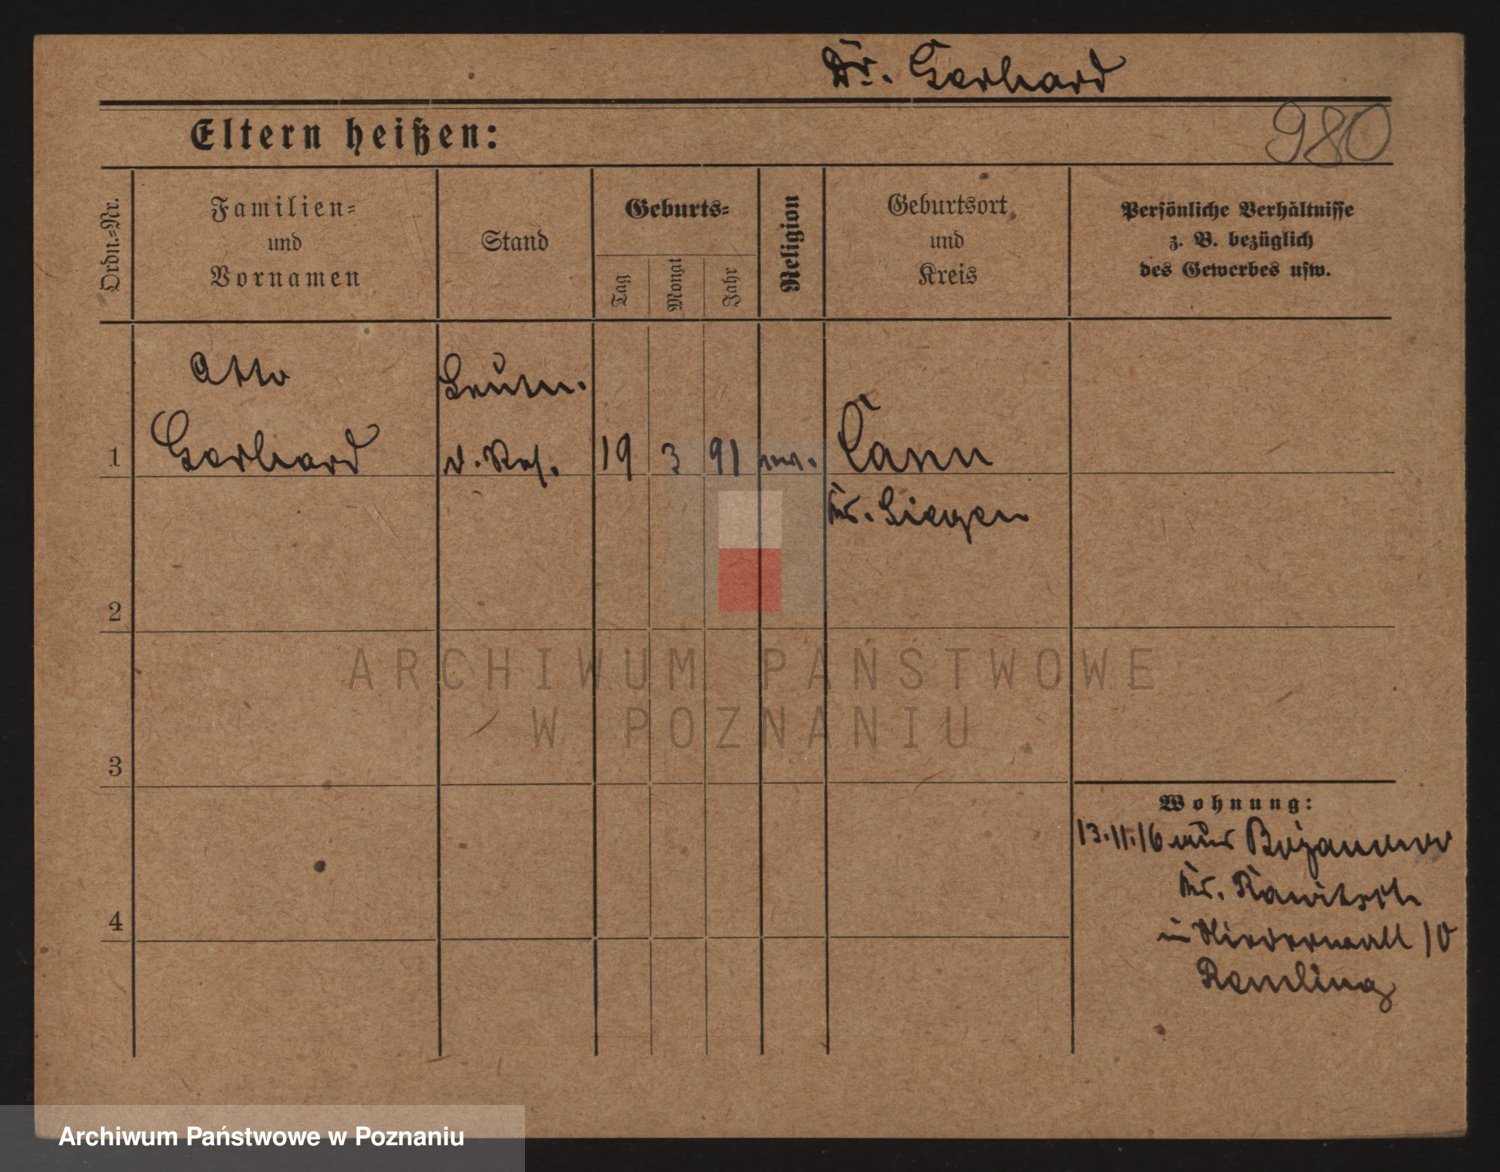 Dr. Gerhard
980
Eltern heißen:
Ordn.=Nr.
Familien=
und
Vornamen
Stand
Geburts=
Tag
Monat
Jahr
Religion
Geburtsort
und
Kreis
Persönliche Verhältnisse
z. B. bezüglich
des Gewerbes usw.
Otto
Gerhard
Leutn.
d. Res.
1
19
3
91
Cann
Kr. Siegen
2
ARCHIWUM PAŃSTWOWE
W POZNANIU
3
Wohnung:
13.11.16 aus Bojanowo
Kr. Rawitsch
in Niederwall 10
4
Archiwum Państwowe w Poznaniu